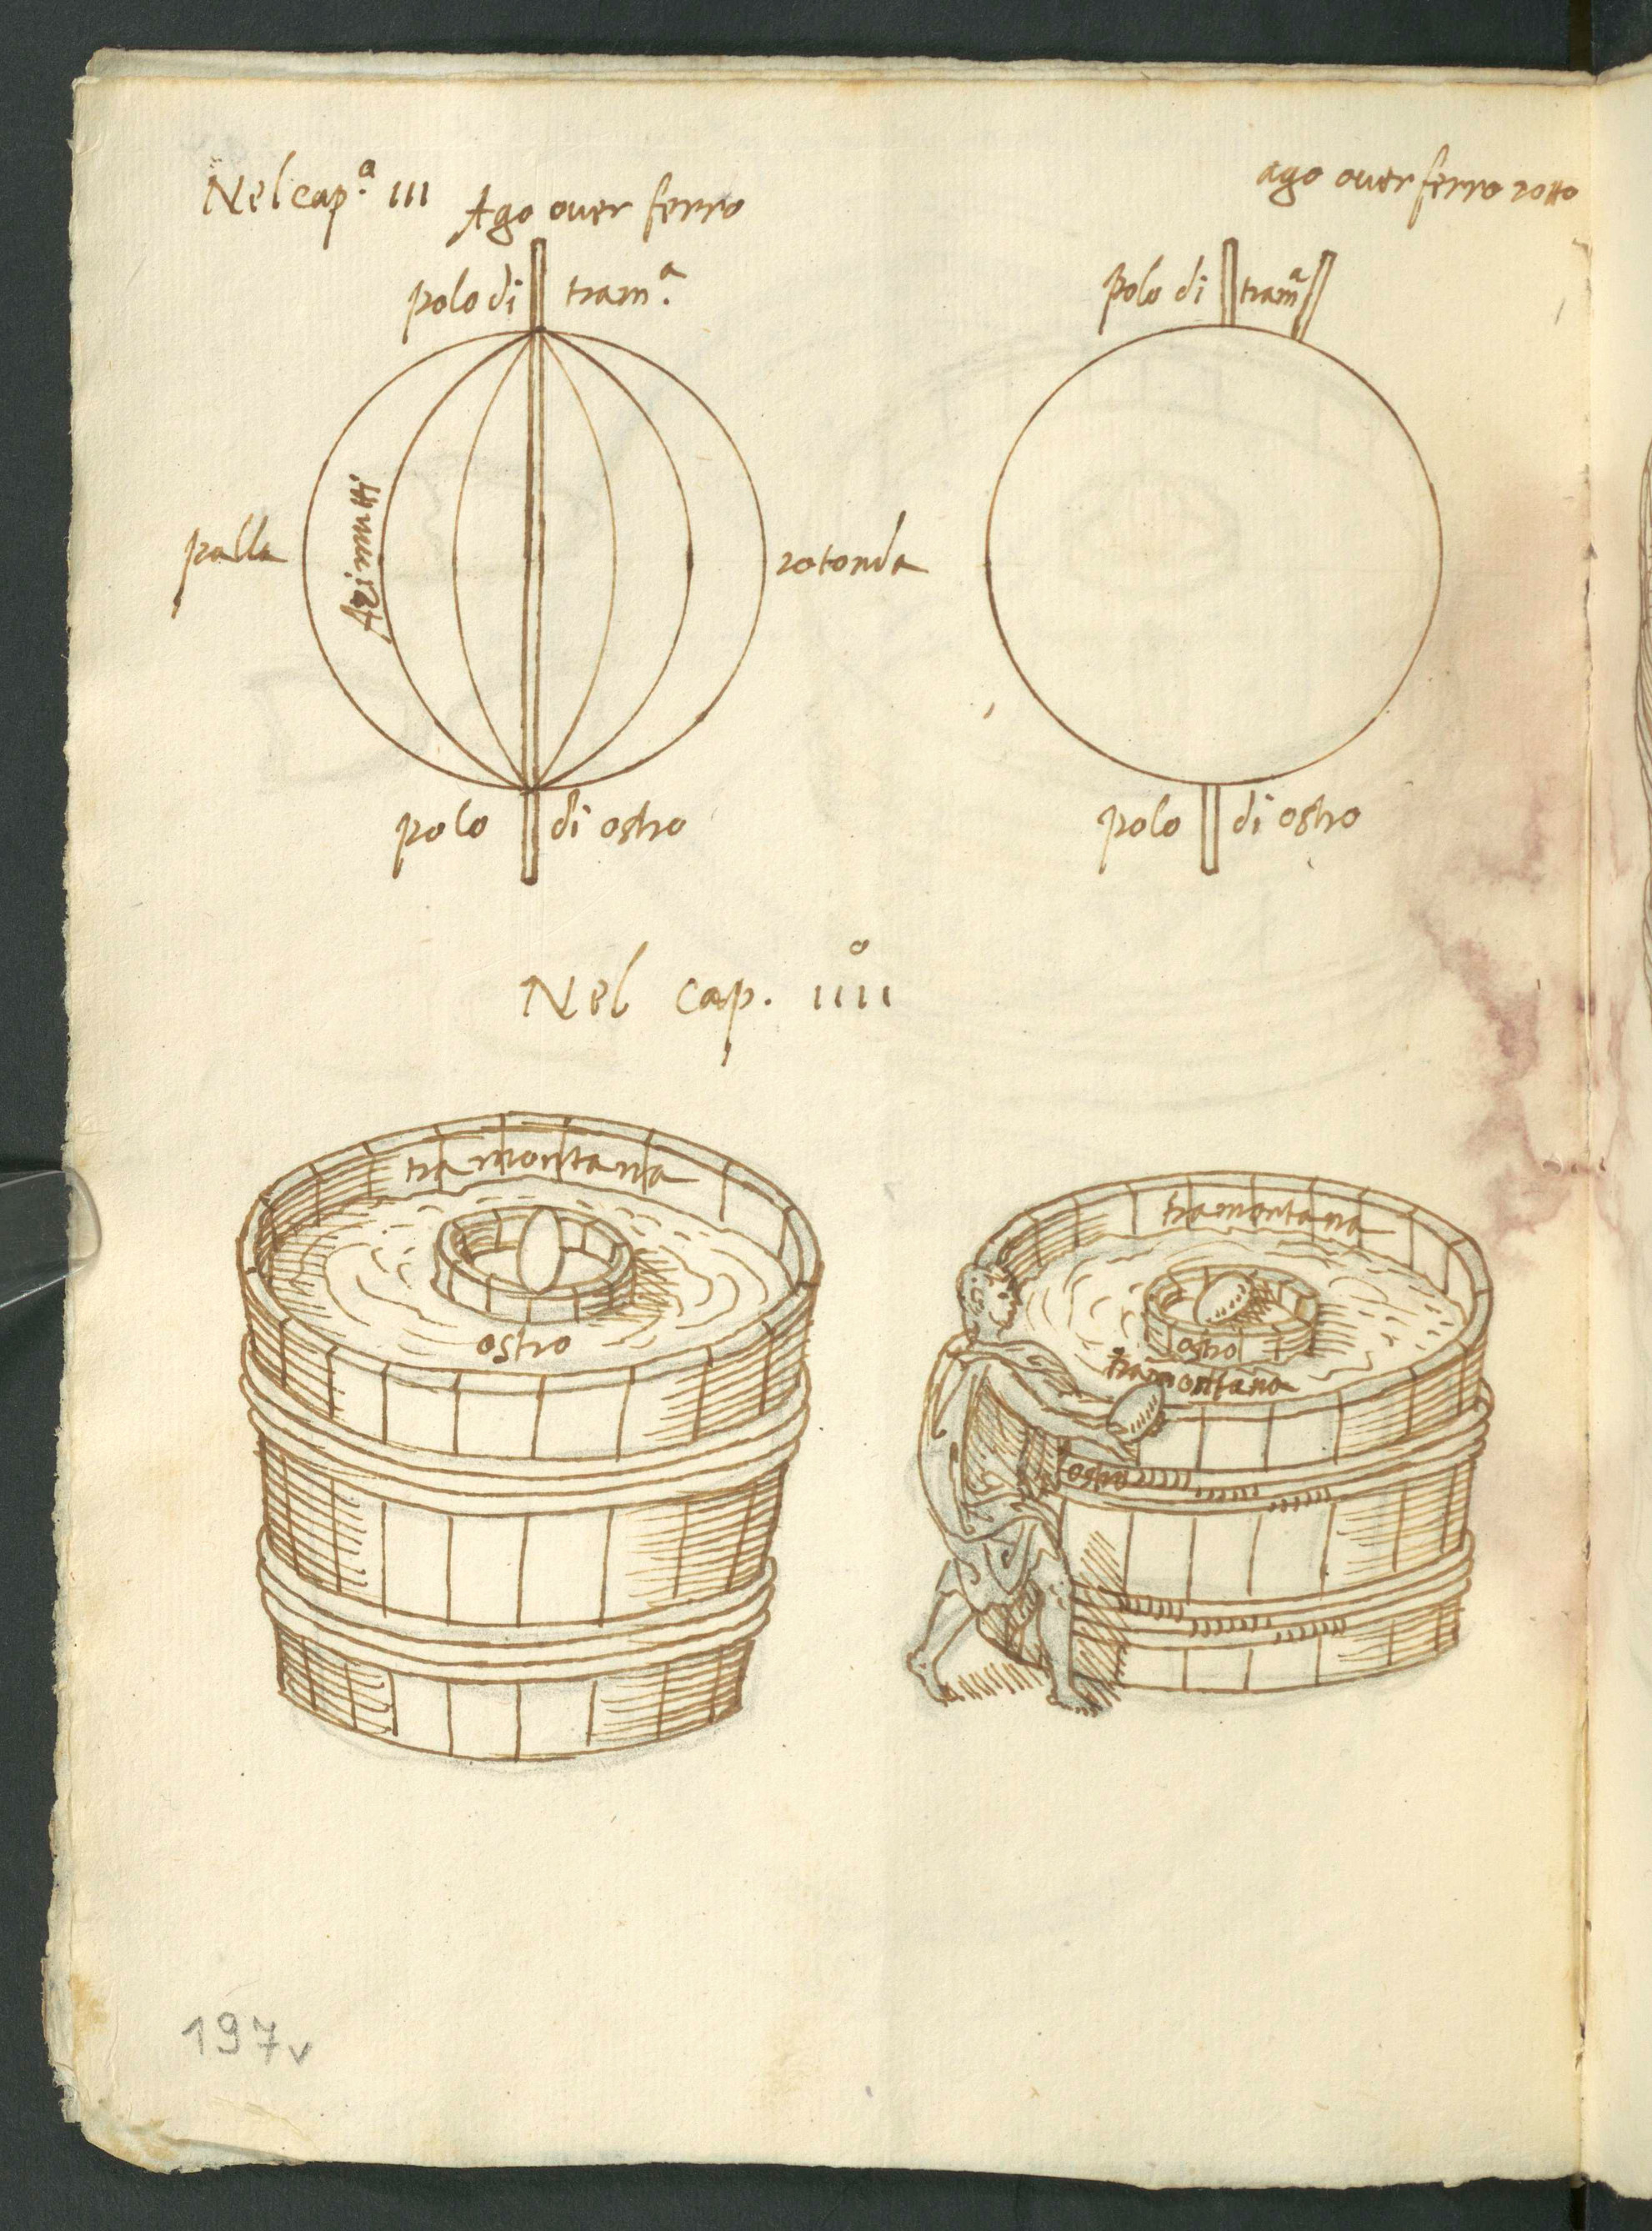 Nel cap.ª III
Ago over ferro
polo di tram.ª
palla
Azimutti
rotonda
polo di ostro
ago over ferro rotto
polo di tramª
polo di ostro
Nel cap. IIII°
tramontana
ostro
tramontana
ostro
tramontana
ostro
197v